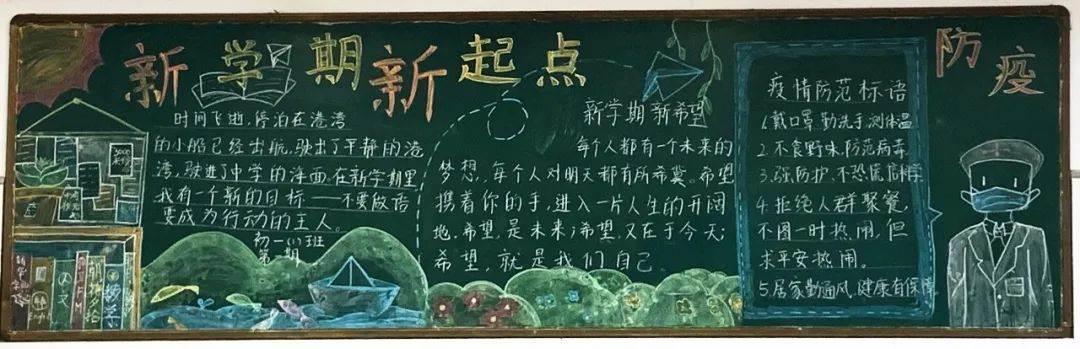 新学期新起点
时间飞逝,停泊在港湾
的小船已经出航,驶出了平静的港
湾,驶进了中学的海面.在新学期里
我有一个新的目标——不要做语
变成为行动的主人。
初一(1)班
第一期
新学期新希望
每个人都有一个未来的
梦想,每个人对明天都有所希冀。希望
携着你的手,进入一片人生的开阔
地.希望,是未来;希望,又在于今天;
希望,就是我们自己.
防疫
疫情防范标语
1.戴口罩,勤洗手,测体温
2.不食野味,防范病毒
3.强防护,不恐慌,信科学
4.拒绝人群聚餐,
不图一时热闹,但
求平安热闹。
5.居家勤通风,健康有保障